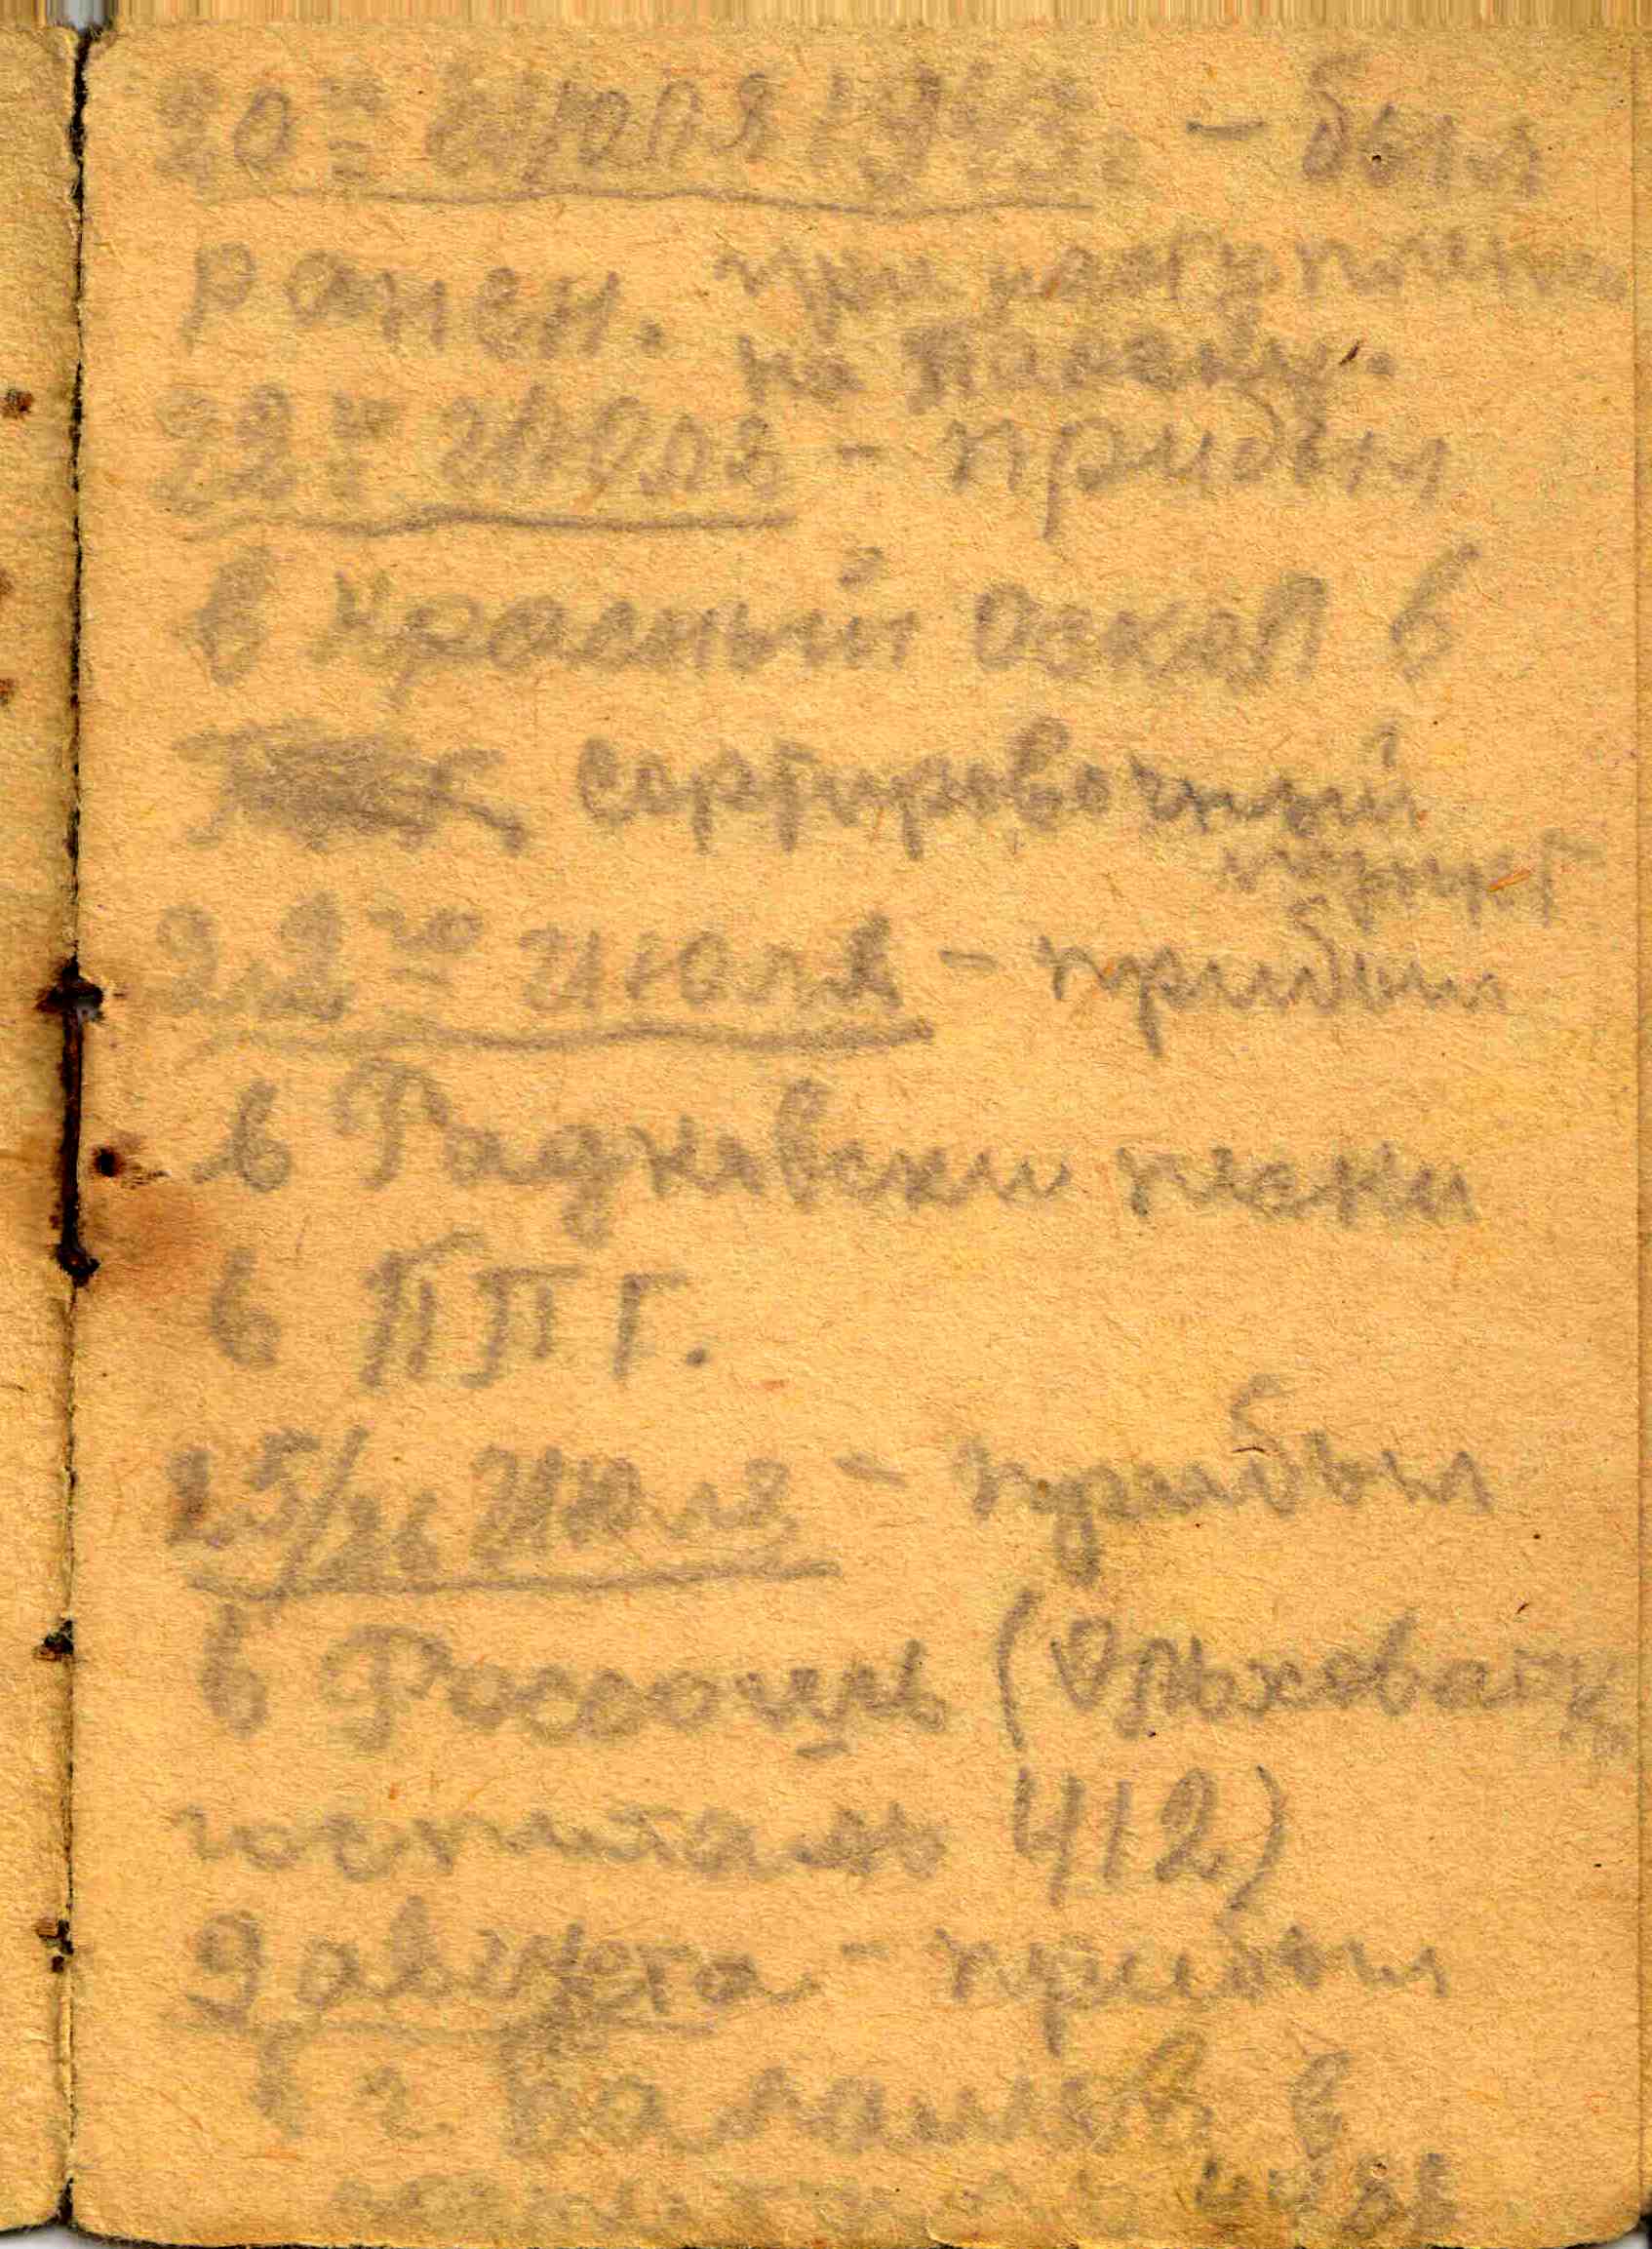 20го июля 1943 г. - был
ранен. при наступлении
на
22го июля - прибыл
в Красный Оскол в
сортировочный
22го июля - прибыл
в Радьковские пески
в ППГ.
25/26 июля - прибыл
в Россошь (Ольховатку
госпиталь 412)
9 августа - прибыл
в г. Балашов в